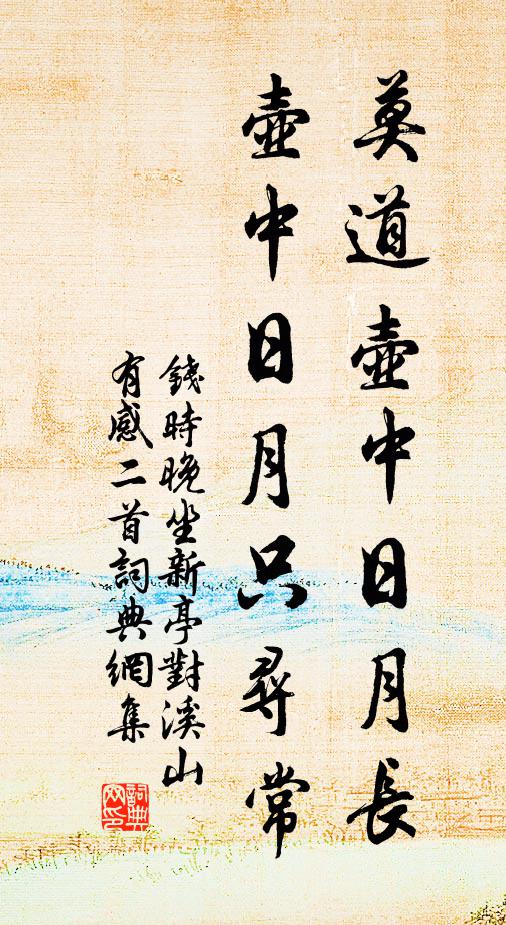 莫道壺中日月長
壺中日月只尋常
錢時晚坐新亭對溪山
有感二首詞典網集
詞典網印